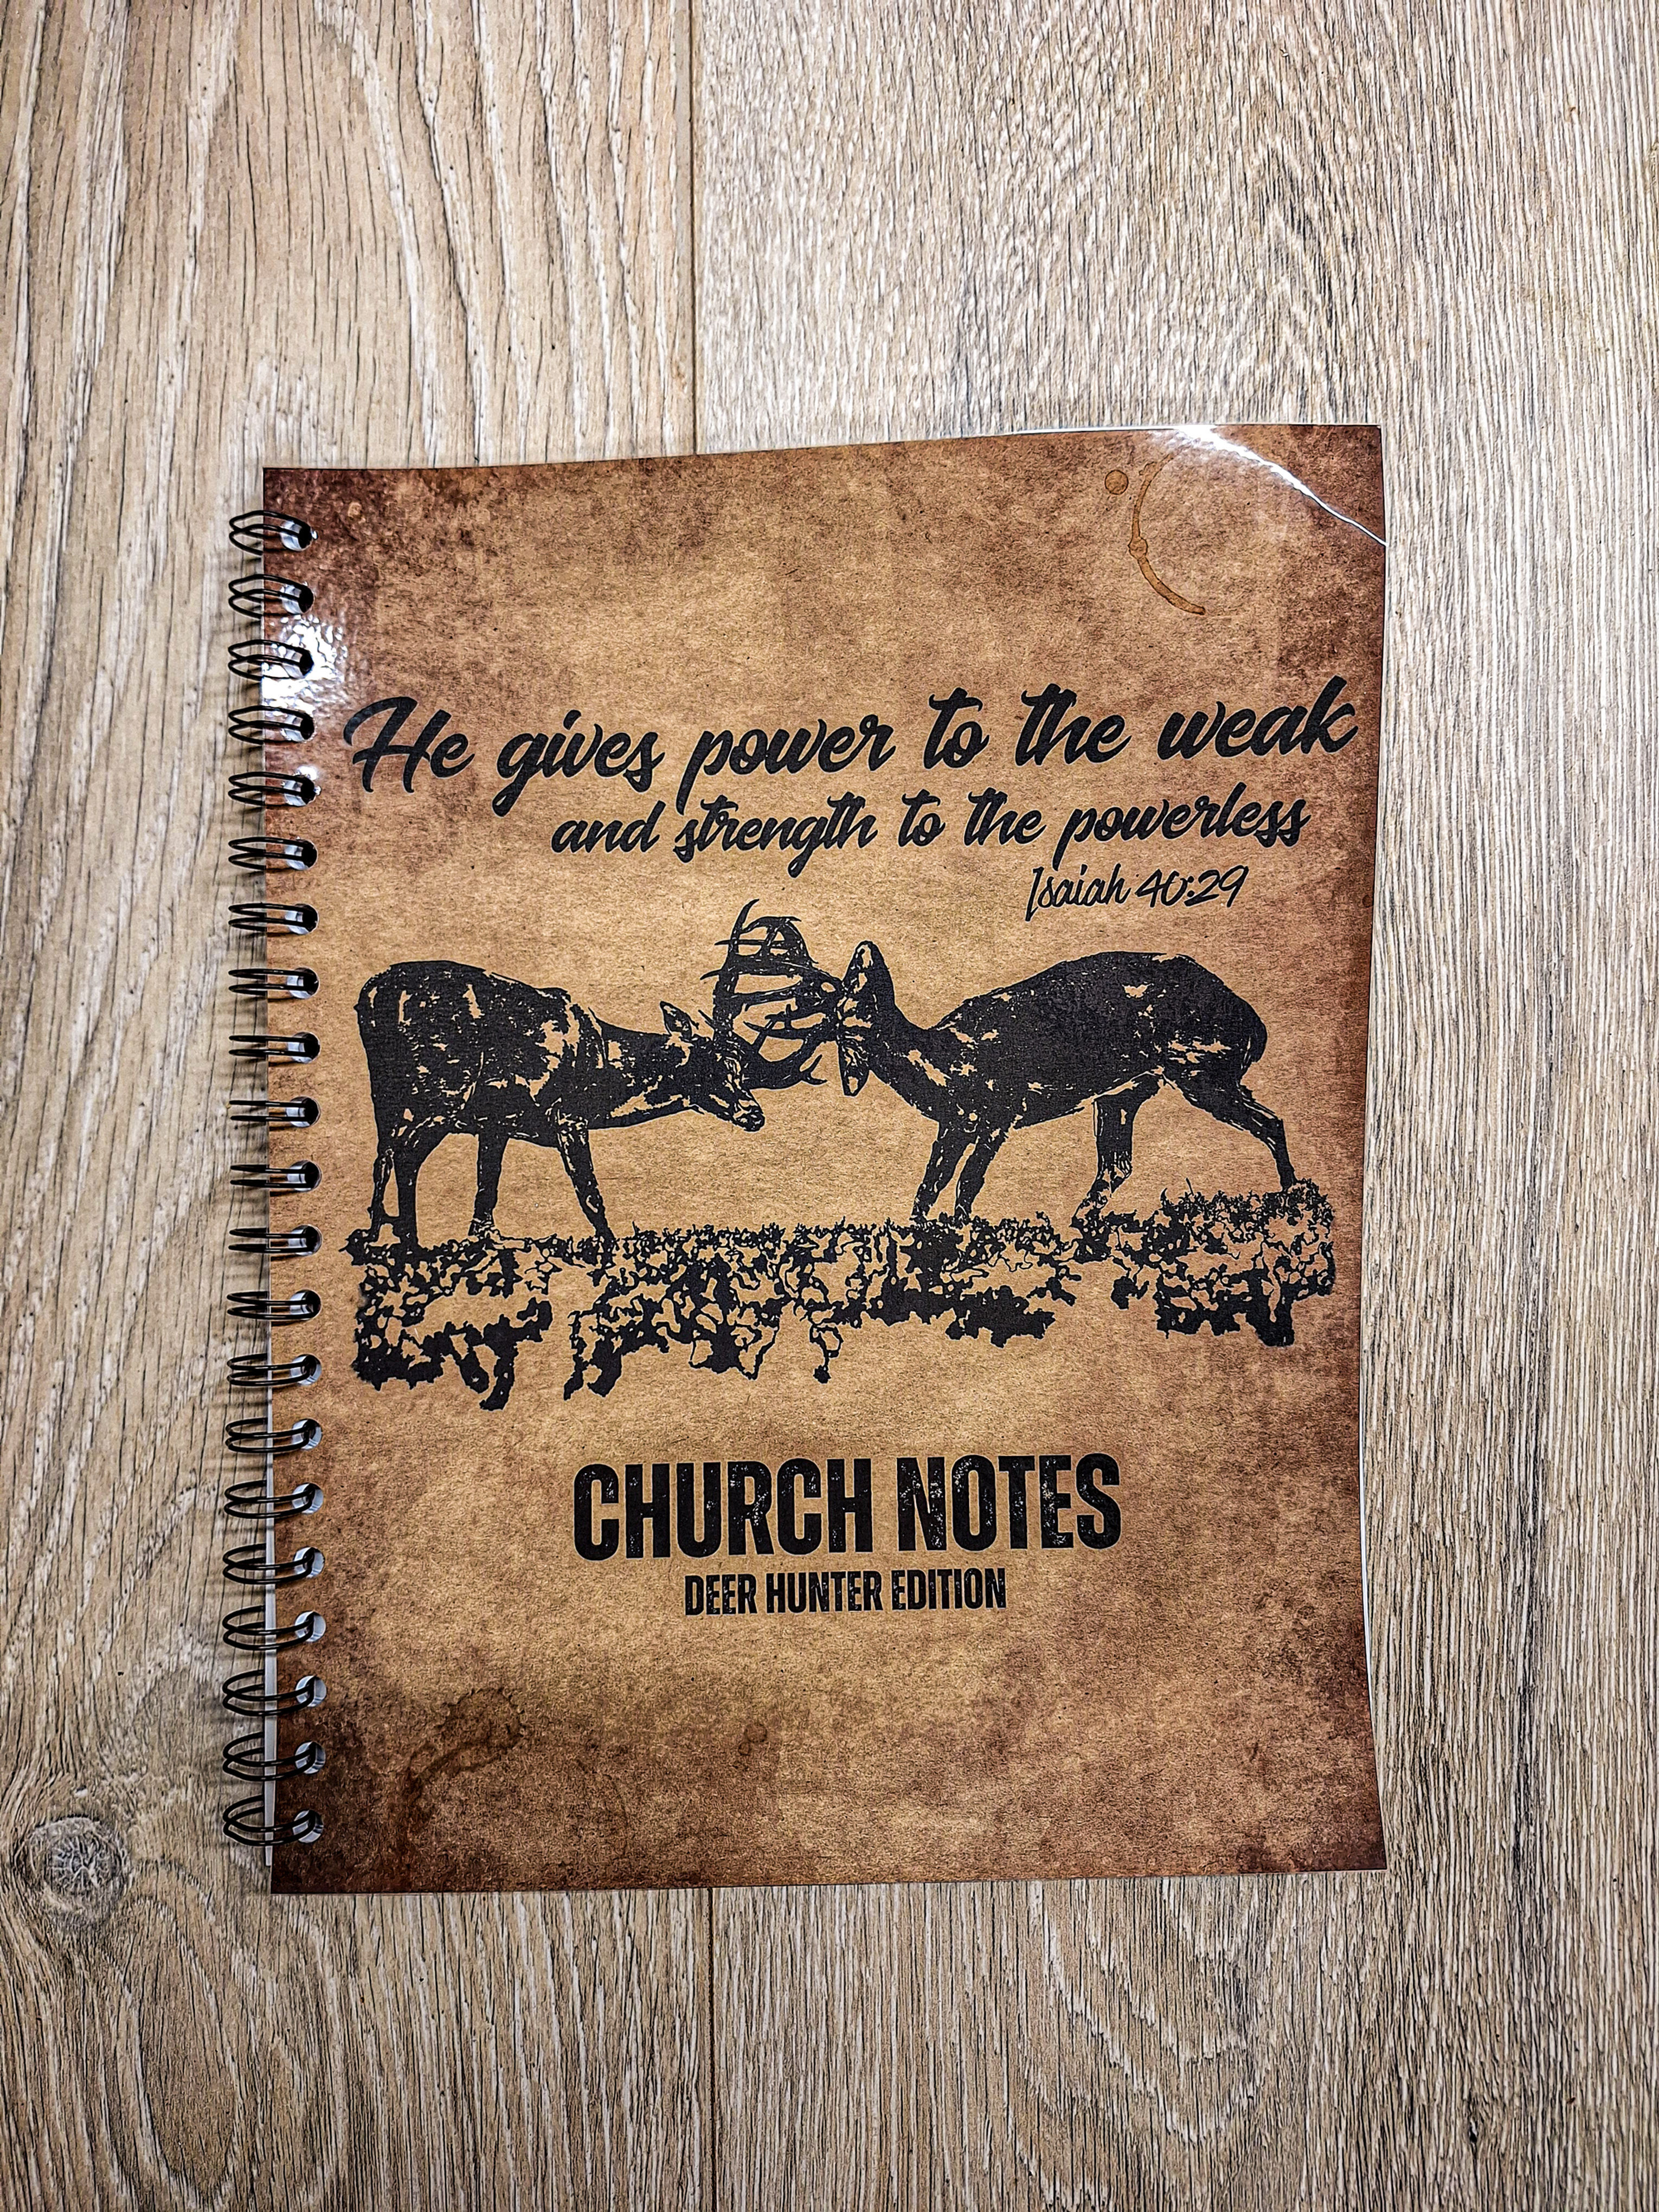 He gives power to the weak
and strength to the powerless
Isaiah 40:29
CHURCH NOTES
DEER HUNTER EDITION